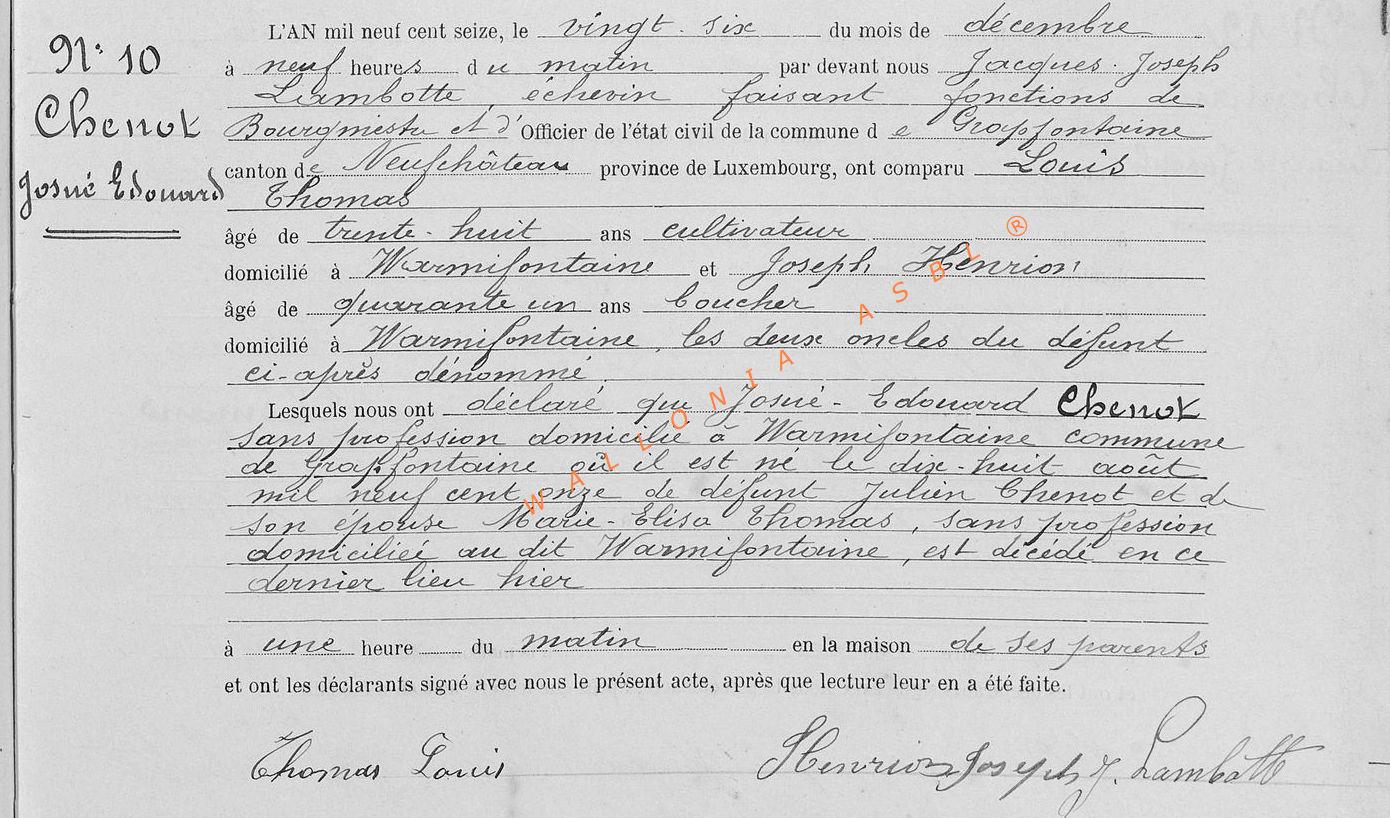 N° 10
Chenot
Josué Edouard
L'AN mil neuf cent seize, le vingt-six du mois de décembre
à neuf heures du matin par devant nous Jacques-Joseph
Lambotte, échevin faisant fonctions de
Bourgmestre et d'Officier de l'état civil de la commune de Grapfontaine
canton de Neufchâteau province de Luxembourg, ont comparu Louis
Thomas
âgé de trente-huit ans cultivateur
domicilié à Warmifontaine et Joseph Henrion
âgé de quarante un ans boucher
domicilié à Warmifontaine, les deux oncles du défunt
ci-après dénommé
Lesquels nous ont déclaré que Josué-Edouard Chenot
sans profession domicilié à Warmifontaine commune
de Grapfontaine où il est né le dix-huit août
mil neuf cent onze de défunt Julien Chenot et de
son épouse Marie-Elisa Thomas, sans profession
domiciliée au dit Warmifontaine, est décédé en ce
dernier lieu hier
à une heure du matin en la maison de ses parents
et ont les déclarants signé avec nous le présent acte, après que lecture leur en a été faite.
Thomas Louis Henrion Joseph J. Lambotte
WALLONIA ASBL ®